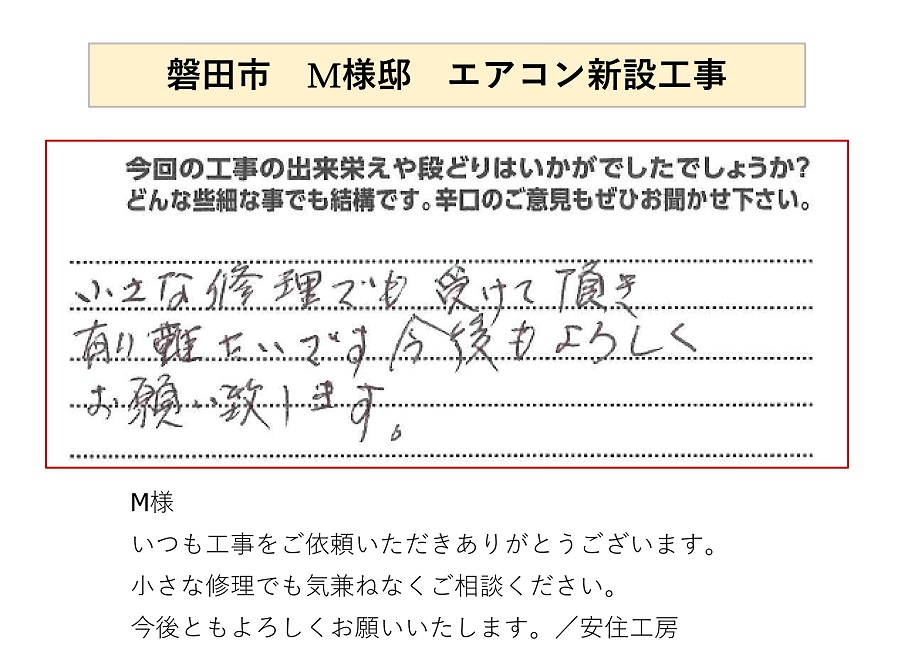 磐田市　M様邸　エアコン新設工事
今回の工事の出来栄えや段どりはいかがでしたでしょうか?
どんな些細な事でも結構です。辛口のご意見もぜひお聞かせ下さい。
小さな修理でも受けて頂き
有り難たいです今後もよろしく
お願い致します。
M様
いつも工事をご依頼いただきありがとうございます。
小さな修理でも気兼ねなくご相談ください。
今後ともよろしくお願いいたします。／安住工房